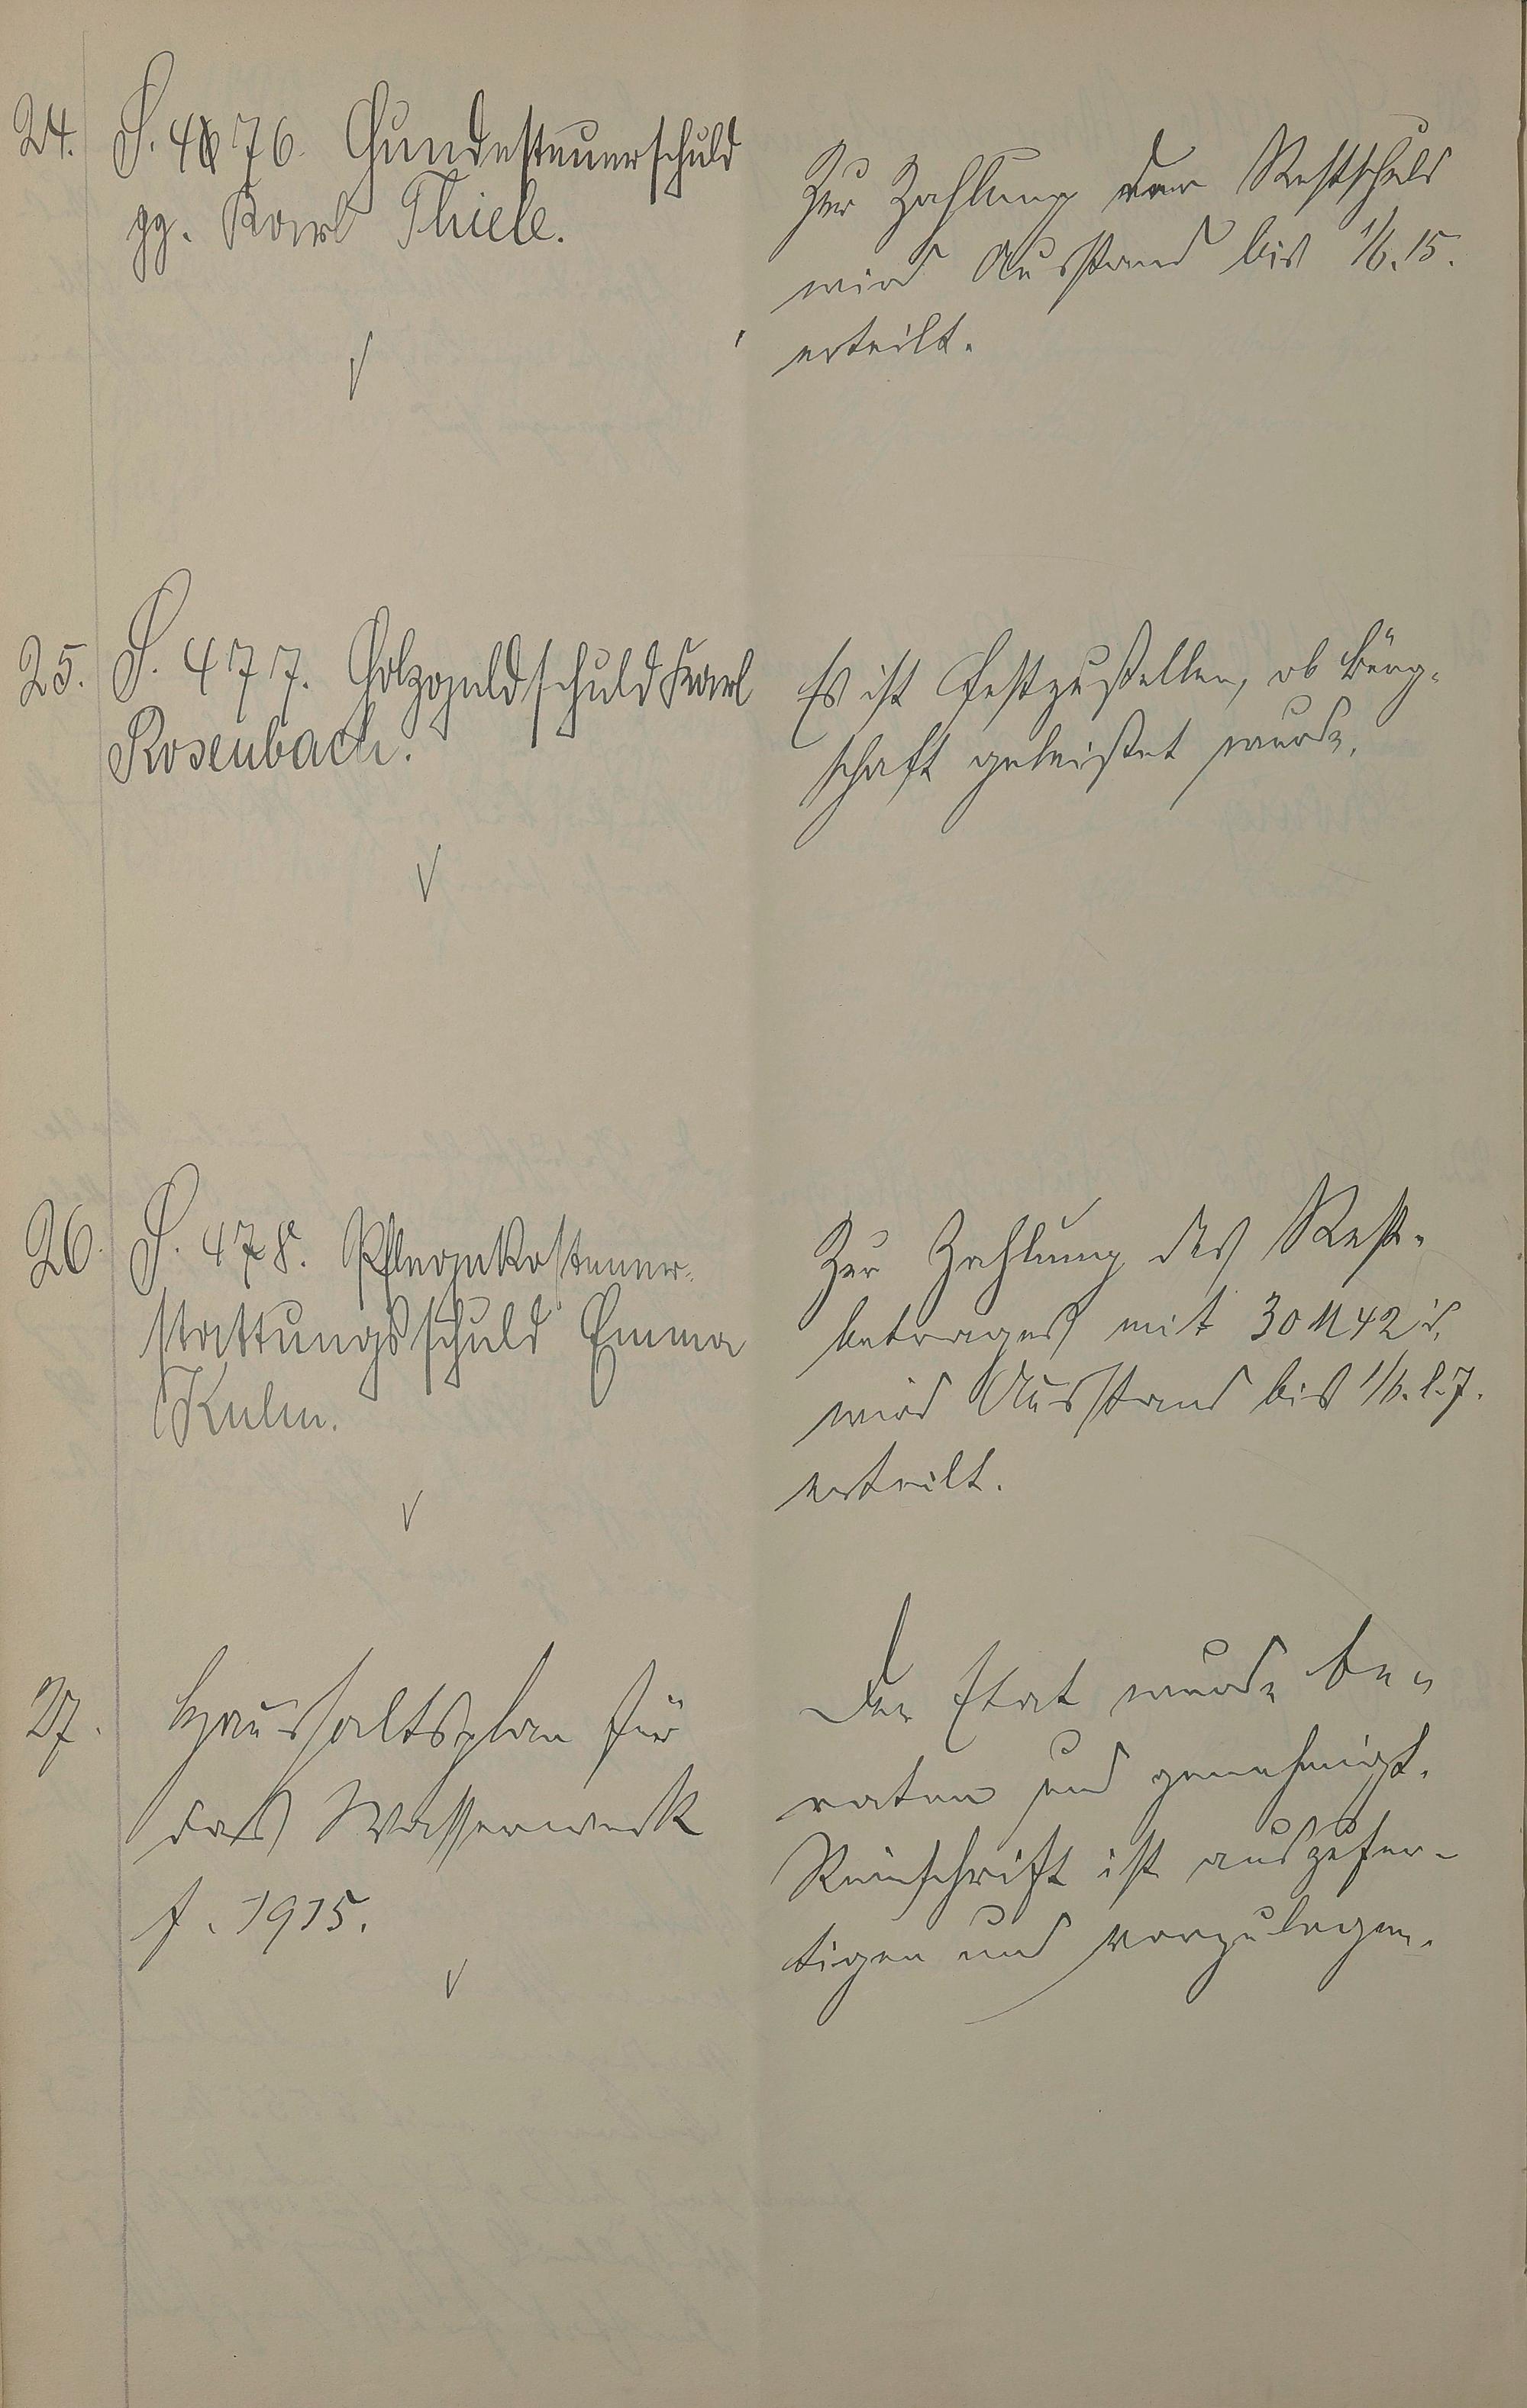 24.
S. 476. Hundesteuerschuld
gg. Karl Thiele.
Zur Zahlung der Restschuld
wird Ausstand bis 1/6. 15.
erteilt.
25.
S. 477. Holzgeldschuld Karl
Rosenbach.
Es ist festzustellen, ob Bürg-
schaft geleistet wurde.
26.
S. 478. Pflegekostener-
stattungsschuld Emma
Kulm.
Zur Zahlung des Rest-
betrages mit 30 M 42 d.
wird Ausstand bis 1/6. l. J.
erteilt.
27.
Haushaltsplan für
das Wasserwerk
f. 1915.
Der Etat wurde be-
raten und genehmigt.
Reinschrift ist auszufer-
tigen und vorzulegen.